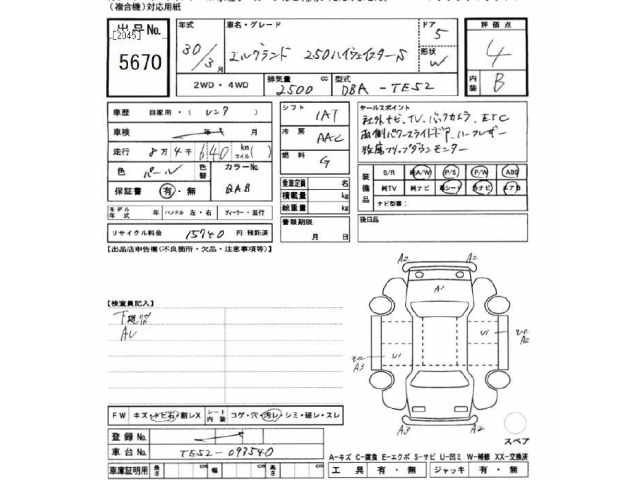 (複合機)対応用紙
出品No.
[2045]
5670
年式
30/3月
車名・グレード
エルグランド 250ハイウェイスターS
ドア
5
形状
W
評価点
4
内装
B
2WD・4WD
排気量
2500 cc
型式
DBA-TE52
車歴 自家用・(レンタ)
車検 年 月
走行 8万4千640 km マイル( )
色 パール 色替 カラーNo. QAB
保証書 有・無
モデル年式 年 ハンドル 左・右 ディーラー・並行
リサイクル料金 15740 円 預託済
シフト
1AT
冷房
AAC
燃料
G
乗車定員 名
積載量 kg
総重量 kg
書類期限
月 日
セールスポイント
社外ナビ、TV、バックカメラ、ETC
両側パワースライドドア、ハーフレザー
後席フリップダウンモニター
装備品
S/R 純A/W P/S P/W ABS
純TV 純ナビ 革シート 社ナビ エアB
ナビ型番:
後日品
【出品店申告欄(不良箇所・欠品・注意事項等)】
【検査員記入】
下廻サビ
AU
A2 A2
A1
U1
モール A2
モール A3
U1
A3 A2
スペア
FW キズ・トビ石・割レX シート内装 コゲ・穴・汚レ・シミ・破レ・スレ
登録No.
車台No. TE52-093540
車庫証明用 長さ cm 幅 cm 高さ cm
A-キズ C-腐食 E-エクボ S-サビ U-凹ミ W-補修 XX-交換済
工具 有・無 ジャッキ 有・無